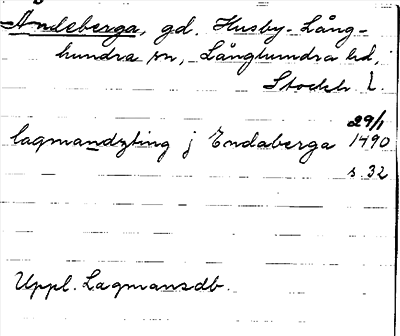 Andeberga, gd. Husby-Lång-
hundra sn, Långhundra hd,
Stockh. l.
29/1
lagmandzting j Endaberga 1490
s. 32
Uppl. Lagmansdb.